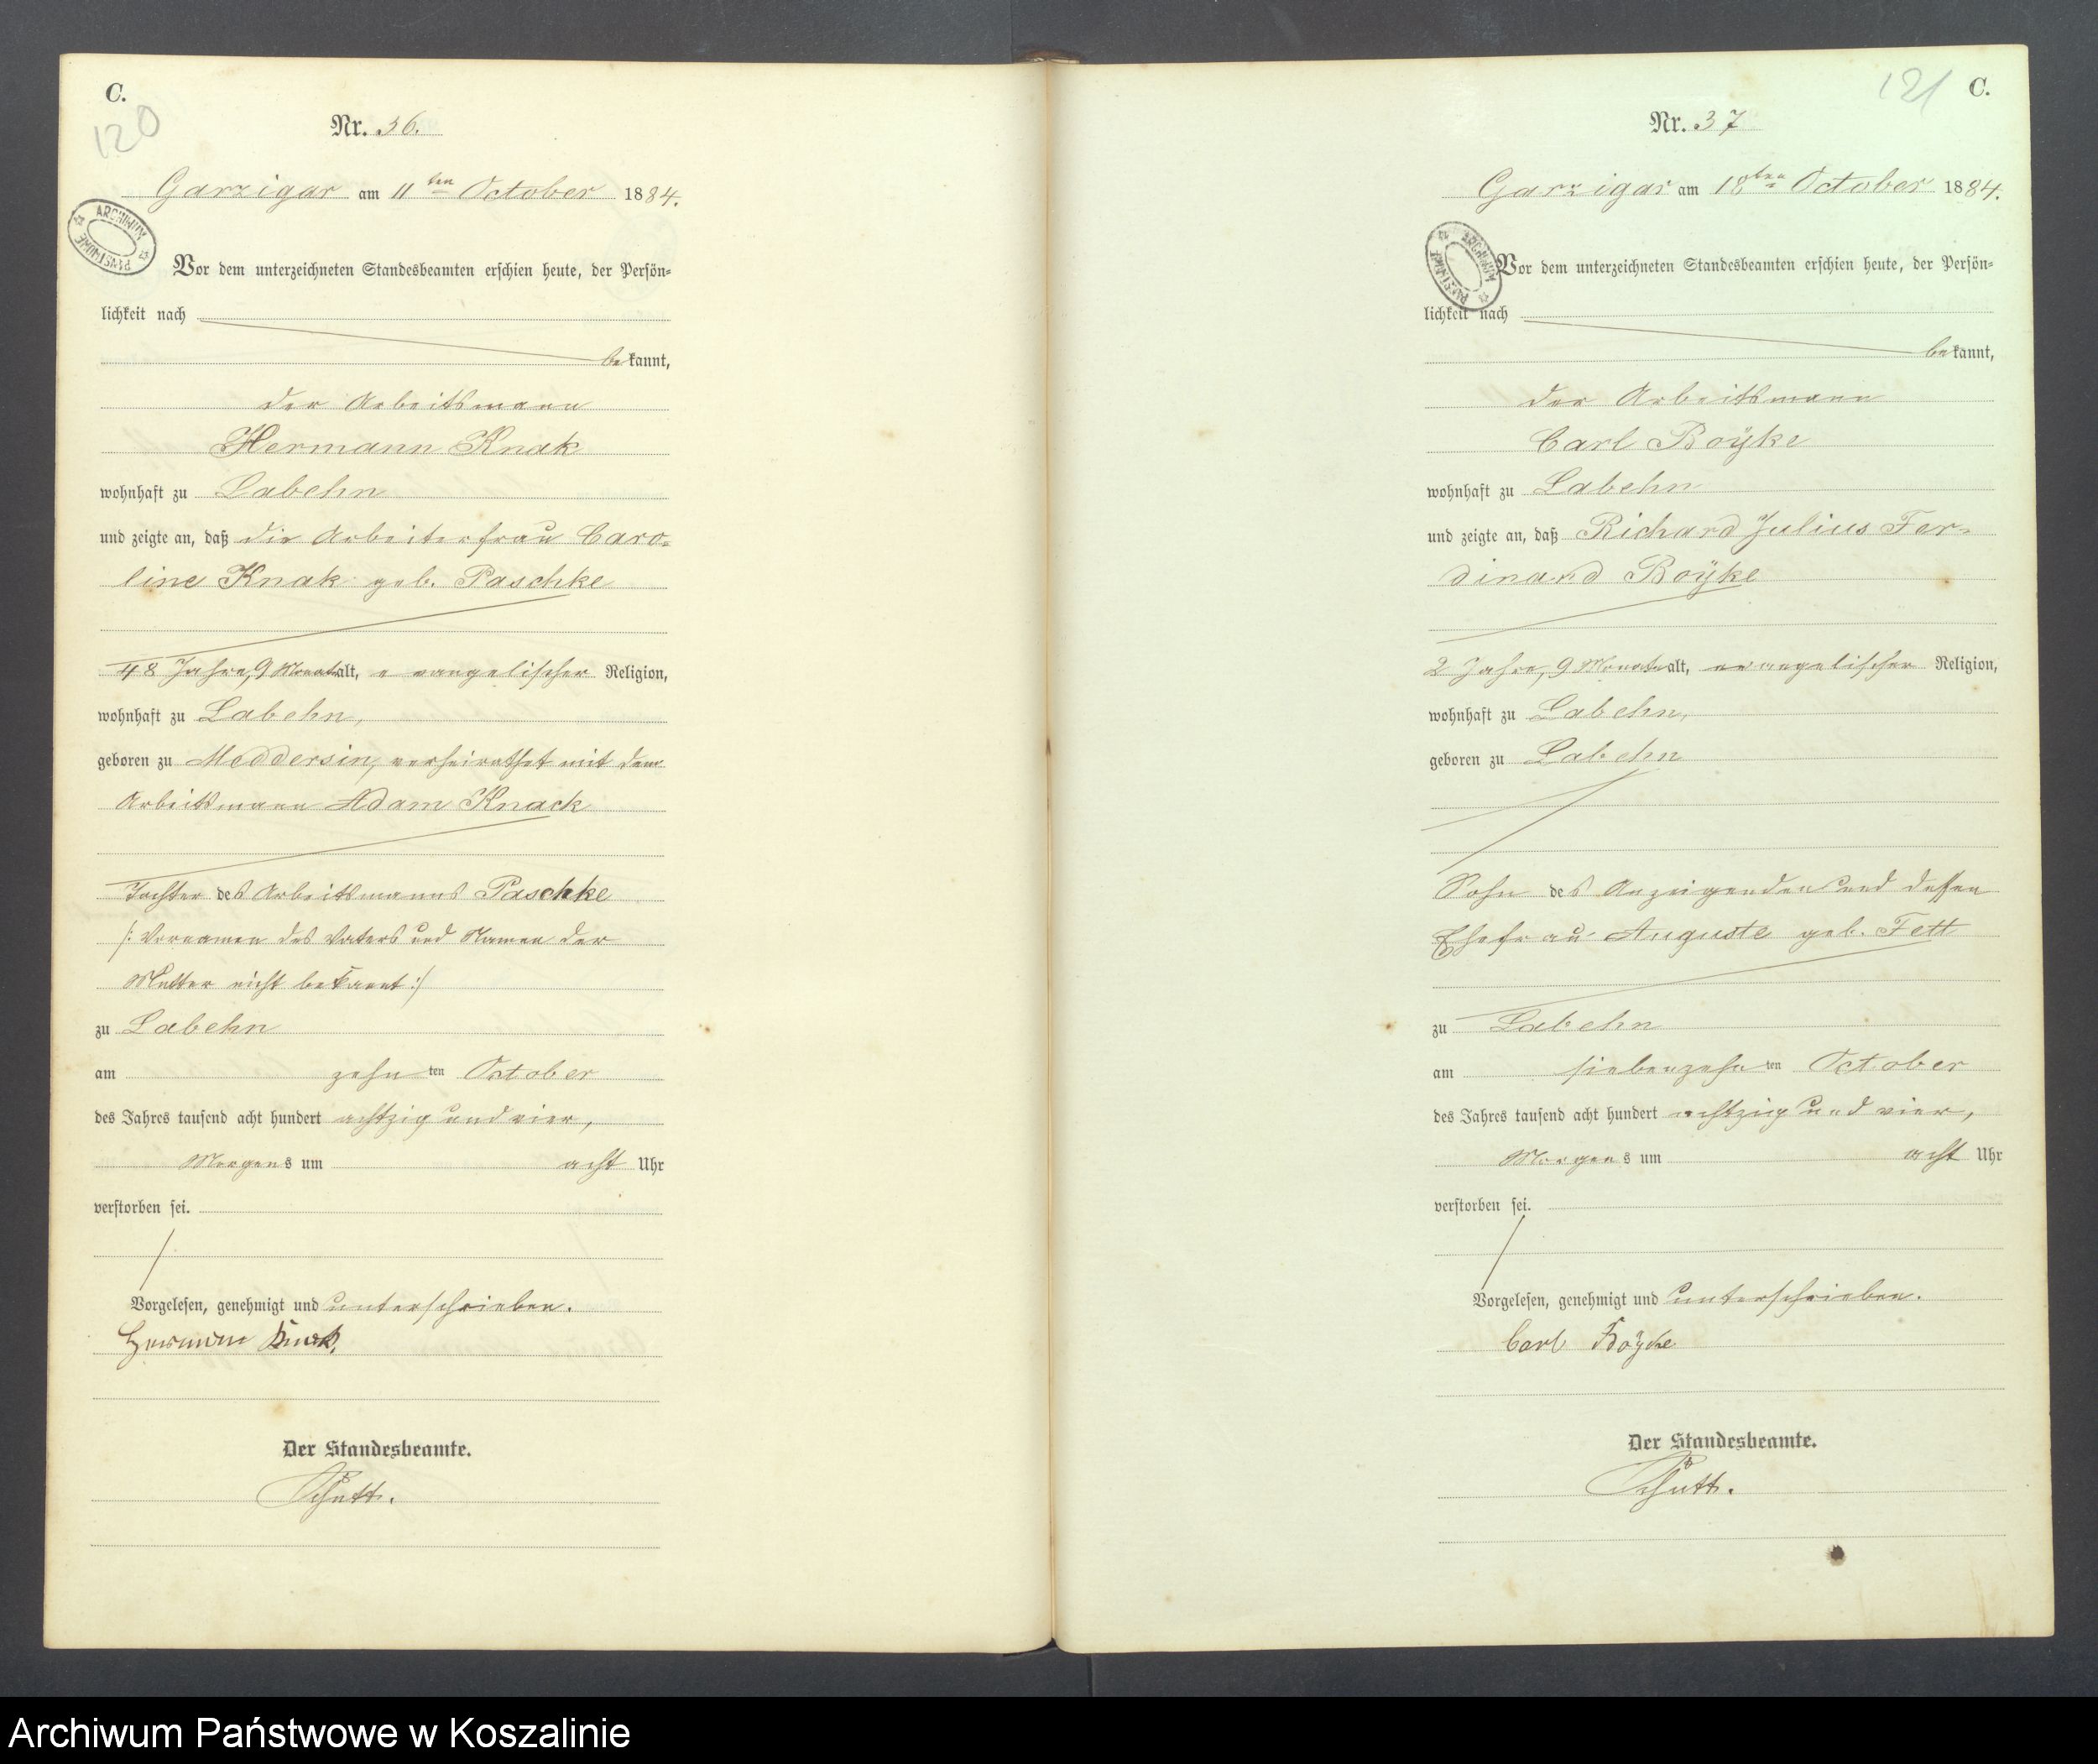 C.
120
Nr. 36.
Garzigar am 11ten October 1884.
ARCHIWUM PAŃSTWOWE
Vor dem unterzeichneten Standesbeamten erschien heute, der Persön=
lichkeit nach
bekannt,
der Arbeitsmann
Hermann Knak
wohnhaft zu Labehn
und zeigte an, daß die Arbeiterfrau Caro=
line Knak geb. Paschke
48 Jahre, 9 Monat alt, evangelischer Religion,
wohnhaft zu Labehn,
geboren zu Meddersin, verheirathet mit dem
Arbeitsmann Adam Knack
Tochter des Arbeitsmanns Paschke
/: Vornamen des Vaters und Namen der
Mutter nicht bekannt :/
zu Labehn
am zehnten October
des Jahres tausend acht hundert achtzig und vier,
Morgens um acht Uhr
verstorben sei.
Vorgelesen, genehmigt und unterschrieben.
Hermann Knak,
Der Standesbeamte.
Schütt.
121
C.
Nr. 37
Garzigar am 18ten October 1884.
ARCHIWUM PAŃSTWOWE
Vor dem unterzeichneten Standesbeamten erschien heute, der Persön=
lichkeit nach
bekannt,
der Arbeitsmann
Carl Boÿke
wohnhaft zu Labehn
und zeigte an, daß Richard Julius Fer=
dinand Boÿke
2 Jahre, 9 Monate alt, evangelischer Religion,
wohnhaft zu Labehn,
geboren zu Labehn
Sohn des Anzeigenden und dessen
Ehefrau Auguste geb. Fett
zu Labehn
am siebenzehnten October
des Jahres tausend acht hundert achtzig und vier,
Morgens um acht Uhr
verstorben sei.
Vorgelesen, genehmigt und unterschrieben.
Carl Boÿke
Der Standesbeamte.
Schütt.
Archiwum Państwowe w Koszalinie